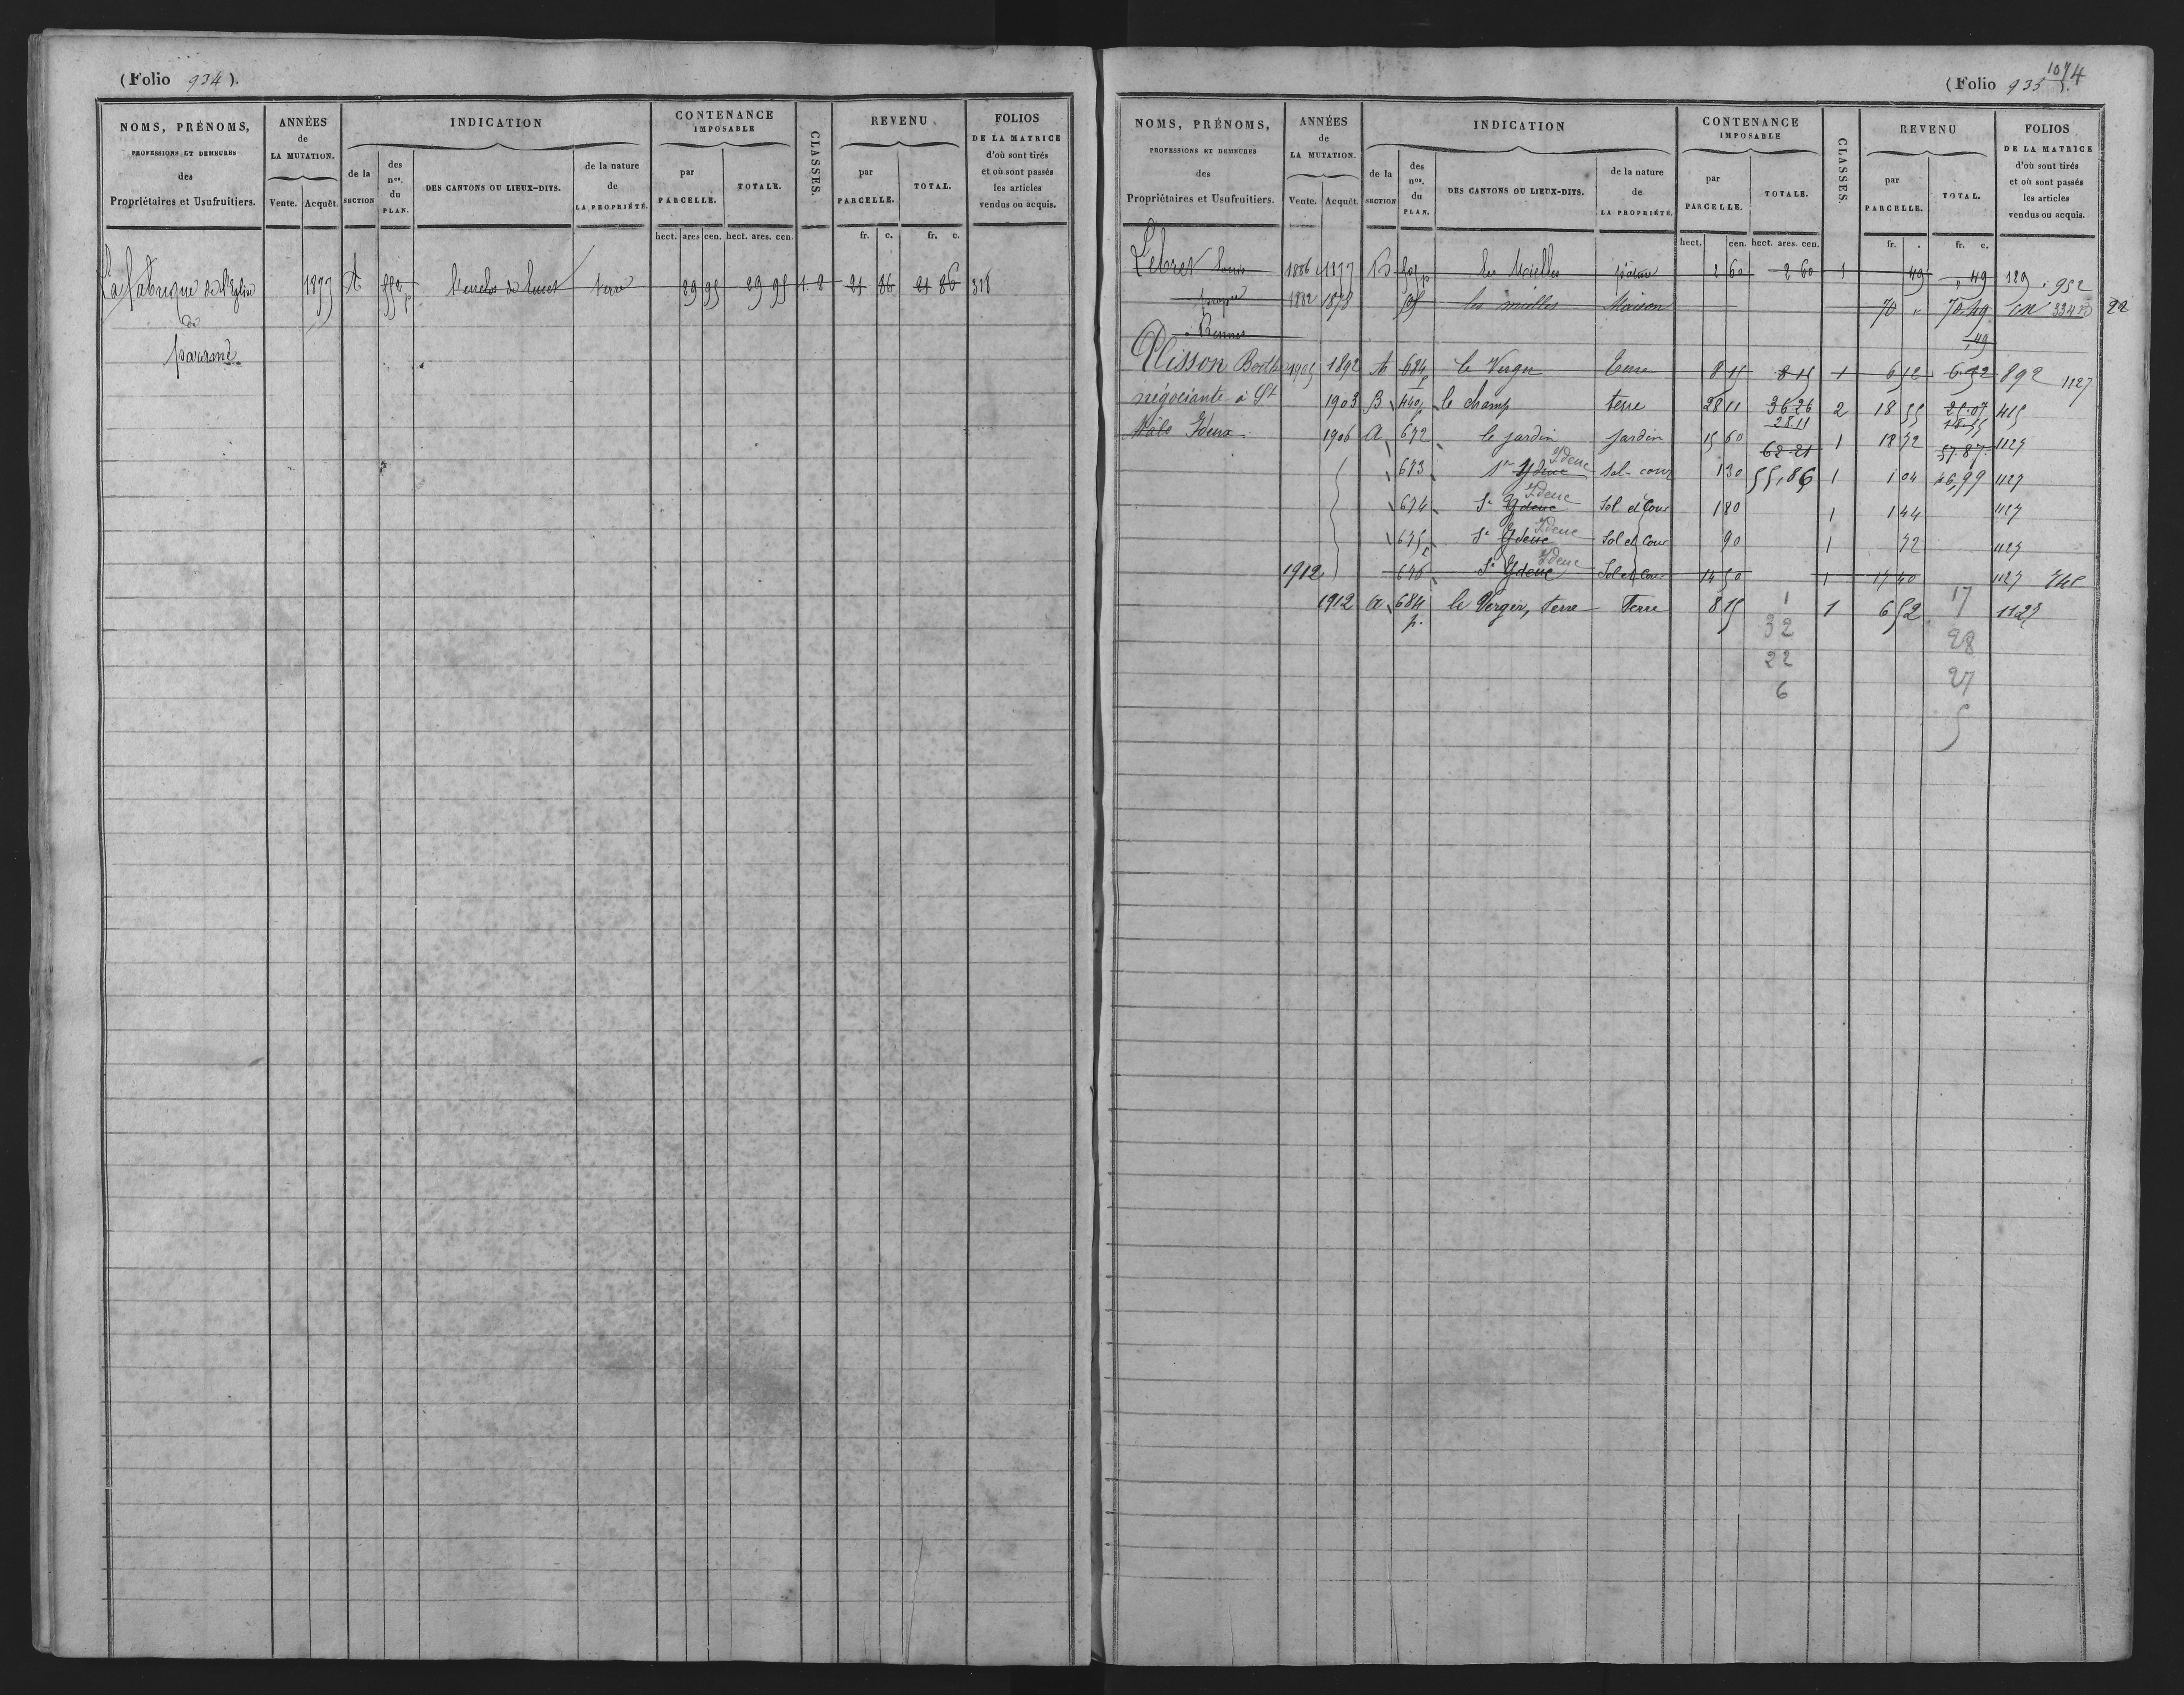 (Folio 934).
NOMS, PRÉNOMS, PROFESSIONS ET DEMEURES des Propriétaires et Usufruitiers.
ANNÉES de LA MUTATION. Vente. Acquêt.
INDICATION de la SECTION des nos. du PLAN. DES CANTONS OU LIEUX-DITS. de la nature de LA PROPRIÉTÉ.
CONTENANCE IMPOSABLE par PARCELLE. TOTALE.
CLASSES.
REVENU par PARCELLE. TOTAL.
FOLIOS DE LA MATRICE d'où sont tirés et où sont passés les articles vendus ou acquis.
hect. ares cen. hect. ares. cen. fr. c. fr. c.
La fabrique de l'Eglise 1877 A p L'enclos de terre 29 95 29 95 1-2 21 86 21 86 318
de
paramé
1074
(Folio 935).
NOMS, PRÉNOMS, PROFESSIONS ET DEMEURES des Propriétaires et Usufruitiers.
ANNÉES de LA MUTATION. Vente. Acquêt.
INDICATION de la SECTION des nos. du PLAN. DES CANTONS OU LIEUX-DITS. de la nature de LA PROPRIÉTÉ.
CONTENANCE IMPOSABLE par PARCELLE. TOTALE.
CLASSES.
REVENU par PARCELLE. TOTAL.
FOLIOS DE LA MATRICE d'où sont tirés et où sont passés les articles vendus ou acquis.
hect. cen. hect. ares. cen. fr. . fr. c.
Lebret Louis 1886 1877 B Les Mielles pature 2 60 2 60 1 49 , 49 129 . 952
1882 1878 les mielles Maison 70 " 70.49 334 22
à Rennes , 49
Plisson Berthe 1905 1892 A 684 p le Verger Terre 8 15 8 15 1 6 52 6.52 892 1127
négociante à St 1903 B 440 p le champ terre 28 11 36.26 2 18 55 25.07 415
28.11 18.55
Malo Ideuc 1906 A 672 le jardin jardin 15 60 62.21 1 18 72 57.87 1127
673 St Ydeuc Ideuc Sol-cour 1 30 55,86 1 1 04 46,99 1127
674 St Ydeuc Ideuc Sol et Cour 1 80 1 1 44 1127
675 St Ydeuc Ideuc Sol et Cour 90 1 72 1127
1912 676 St Ydeuc Ideuc Sol et Cour 14 50 1 17 40 1127
1912 A 684 p. le Verger, terre Terre 8 15 1 1 6 52 17 1127
32 28
22 27
6 5